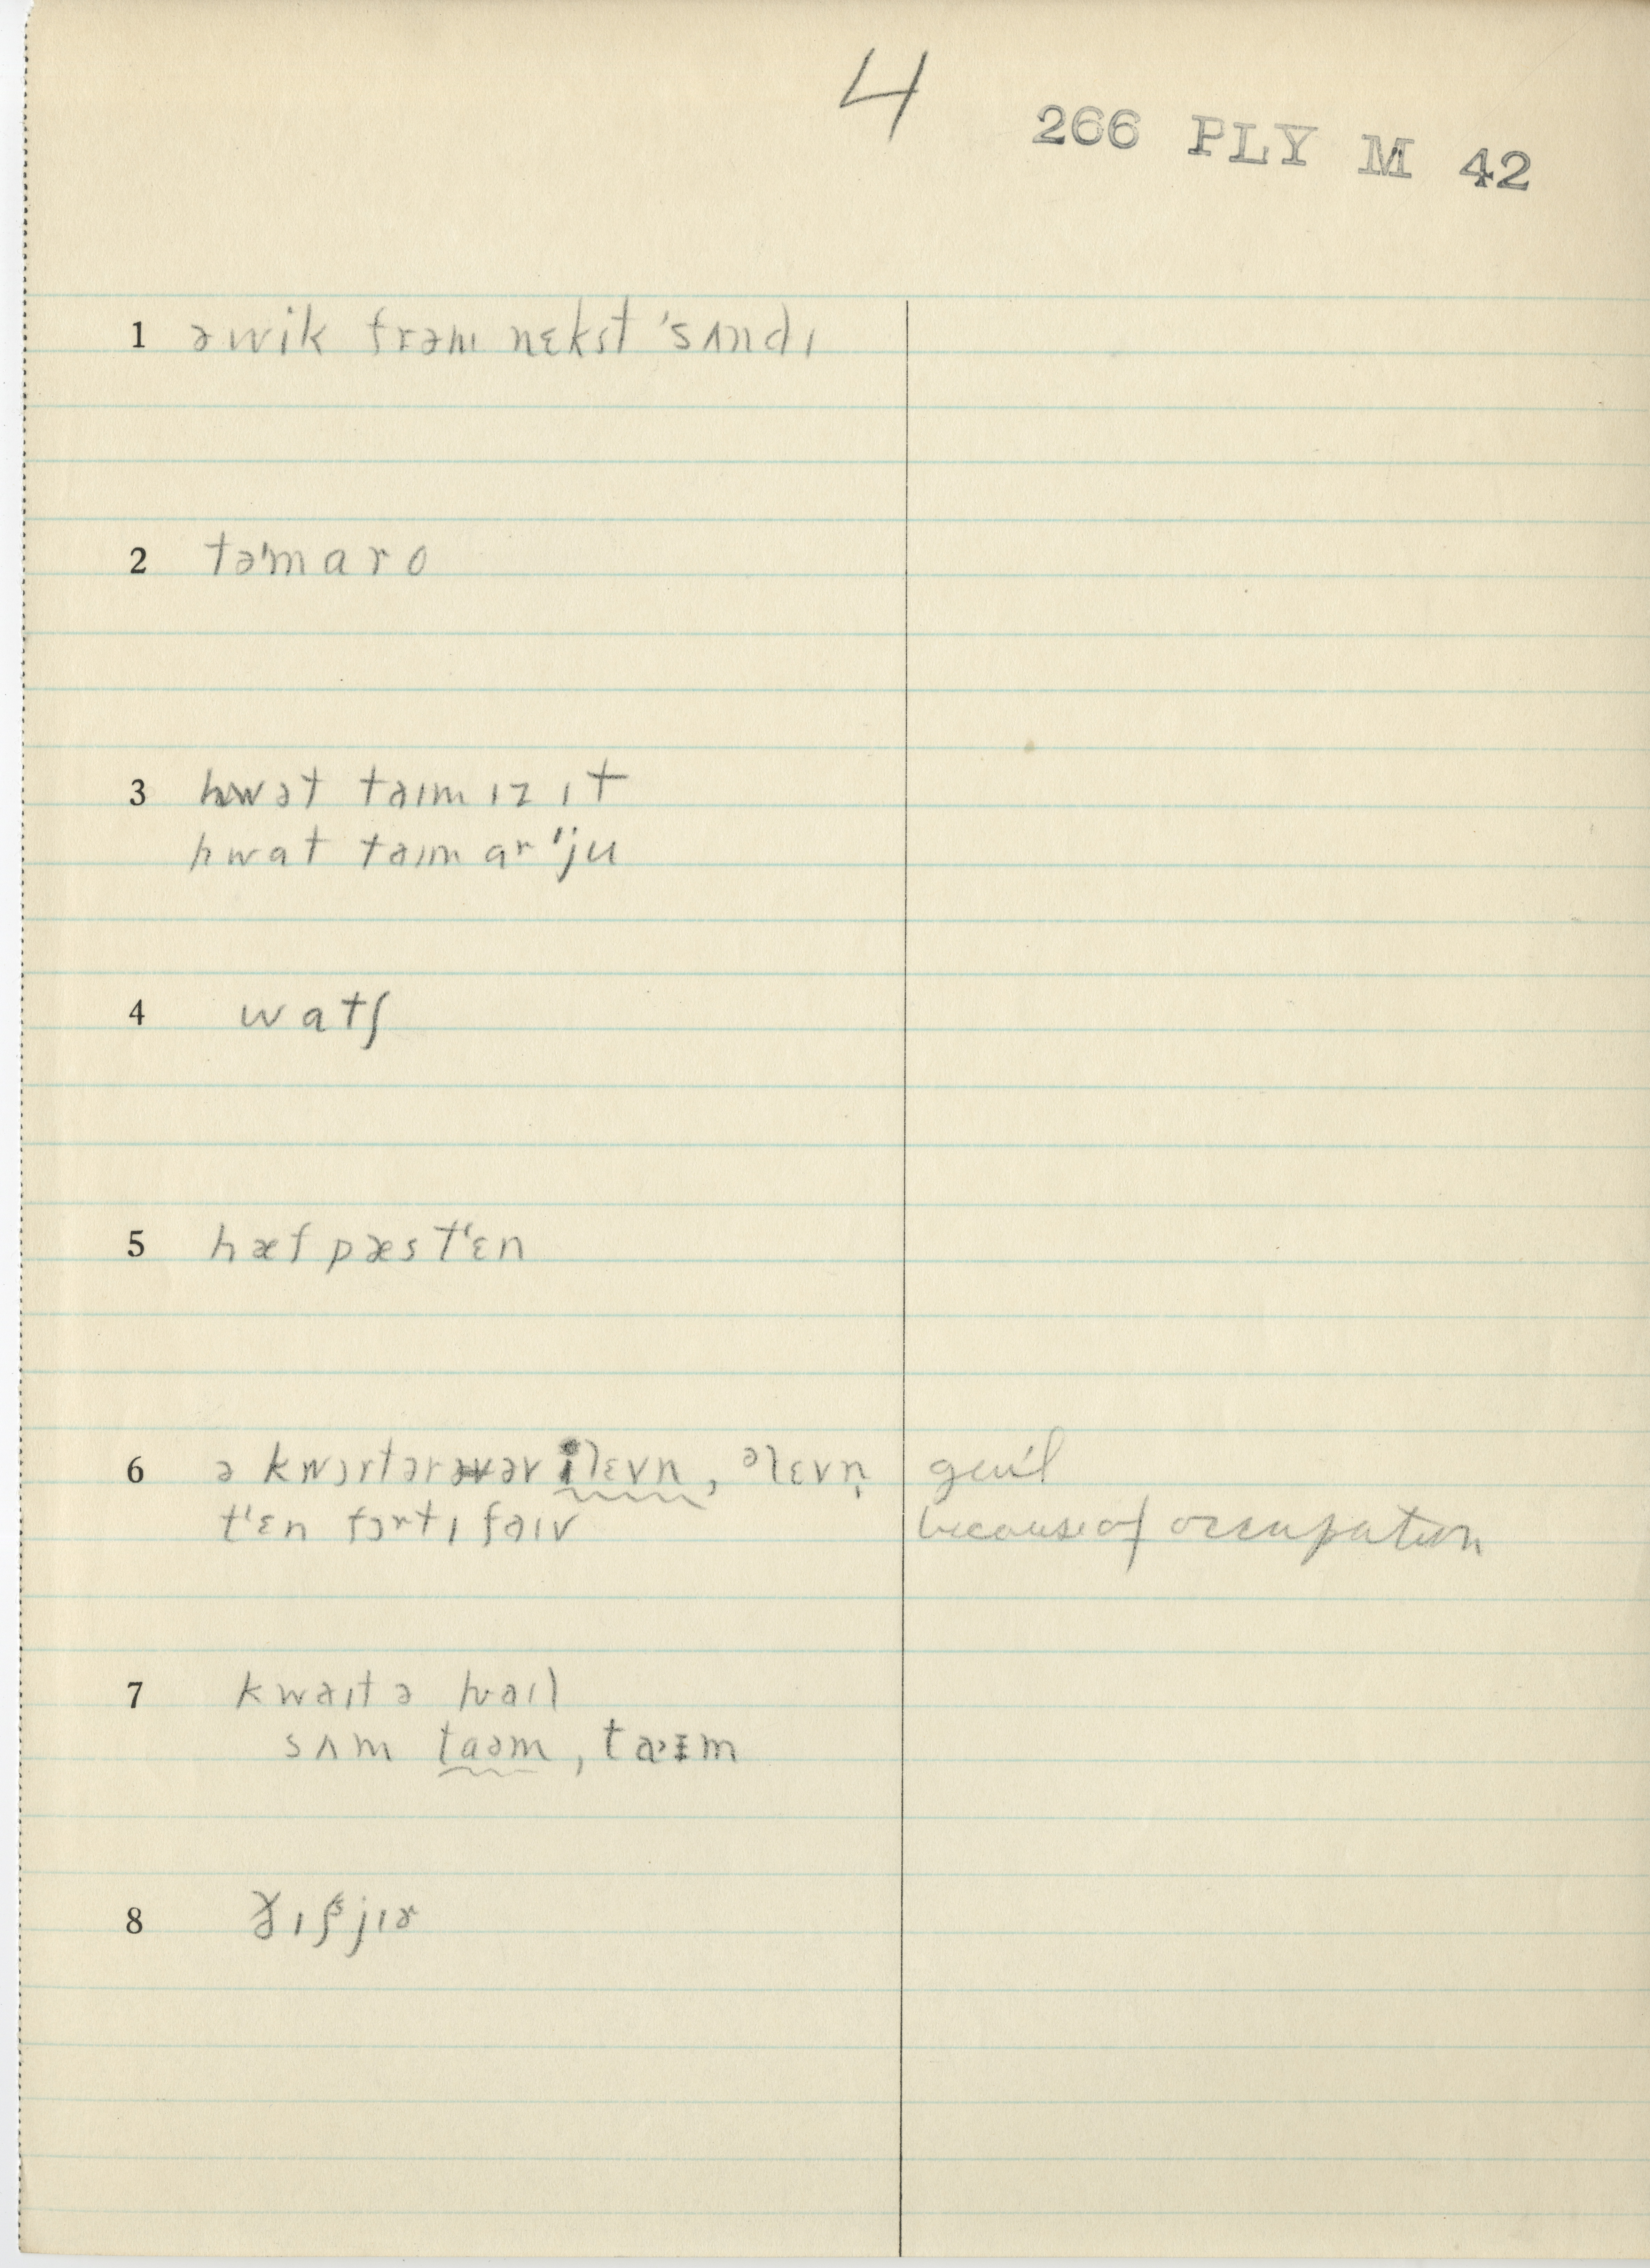 4
266 PLY M 42
1 ə wik frəm nɛkst 'sʌndɪ
2 tə'maro
3 hwət taɪm ɪz ɪt
hwat taɪm ar 'ju
4 watʃ
5 hæf pæs tʻɛn
6 ə kwɔrtər əv ilɛvn, əlɛvn̩ gen'l
tʻɛn fɔrtɪ faɪv because of occupation
7 kwaɪt ə hwaɪl
sʌm taəm, taˑɪm